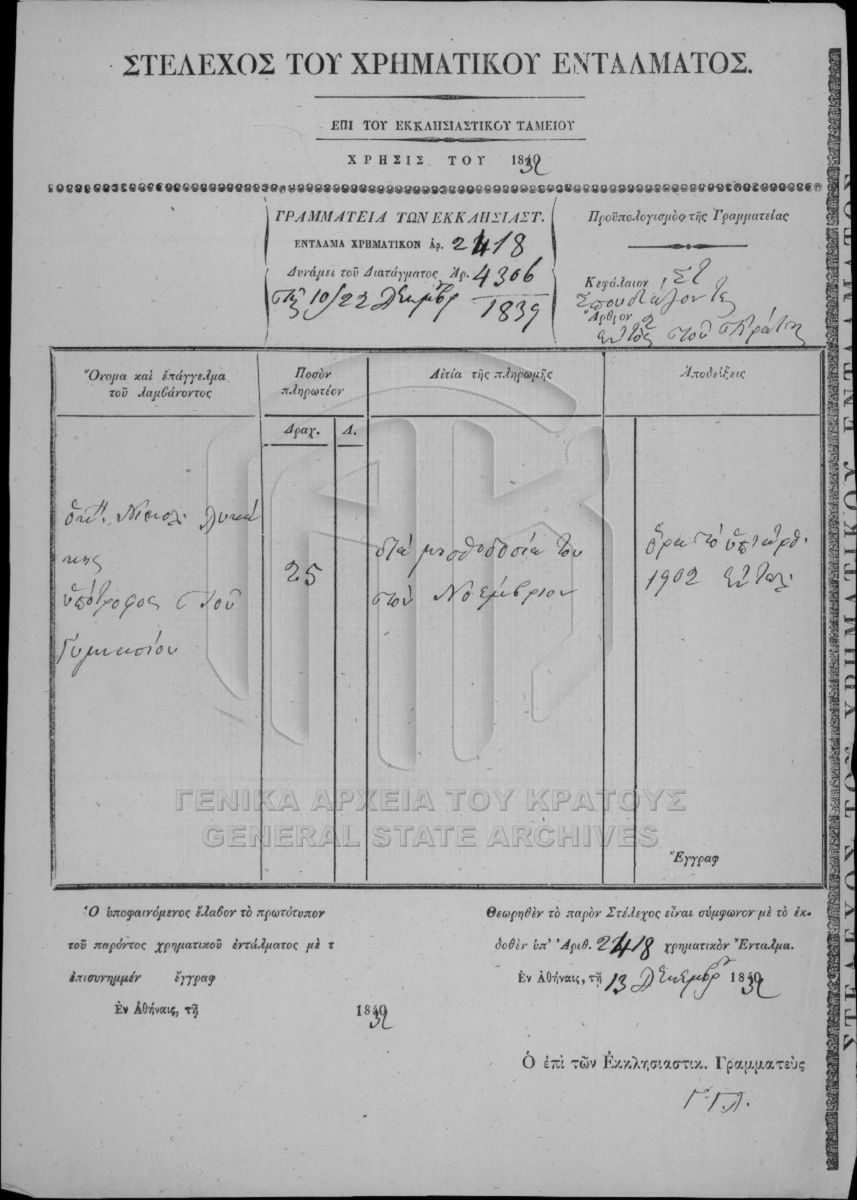 ΣΤΕΛΕΧΟΣ ΤΟΥ ΧΡΗΜΑΤΙΚΟΥ ΕΝΤΑΛΜΑΤΟΣ.
ΕΠΙ ΤΟΥ ΕΚΚΛΗΣΙΑΣΤΙΚΟΥ ΤΑΜΕΙΟΥ
ΧΡΗΣΙΣ ΤΟΥ 1839
ΓΡΑΜΜΑΤΕΙΑ ΤΩΝ ΕΚΚΛΗΣΙΑΣΤ.
ΕΝΤΑΛΜΑ ΧΡΗΜΑΤΙΚΟΝ Ἀρ. 2418
Δυνάμει τοῦ Διατάγματος Ἀρ. 4306
10/22 Δεκεμβρ 1839
Προϋπολογισμὸς τῆς Γραμματείας
Κεφάλαιον ΣΤ
Σπουδάζοντες
Ἄρθρον 2
ἐντὸς τοῦ Κράτους
Ὄνομα καὶ ἐπάγγελμα
τοῦ λαμβάνοντος
Ποσὸν
πληρωτέον
Αἰτία τῆς πληρωμῆς
Ἀποδείξεις
Δραχ.
Λ.
Νικολ.
ὑπότροφος τοῦ
Γυμνασίου
25
διὰ μισθοδοσίαν του
τὸν Νοέμβριον
ὅρα τὸ ὑπ' ἀριθ.
1902 ἐνταλ.
ΓΕΝΙΚΑ ΑΡΧΕΙΑ ΤΟΥ ΚΡΑΤΟΥΣ
GENERAL STATE ARCHIVES
Ἔγγραφ
Ὁ ὑποφαινόμενος ἔλαβον τὸ πρωτότυπον
τοῦ παρόντος χρηματικοῦ ἐντάλματος μὲ τ
ἐπισυνημμέν ἔγγραφ
Ἐν Ἀθήναις, τῇ 1839
Θεωρηθὲν τὸ παρὸν Στέλεχος εἶναι σύμφωνον μὲ τὸ ἐκ-
δοθὲν ὑπ' Ἀριθ. 2418 χρηματικὸν Ἔνταλμα.
Ἐν Ἀθήναις, τῇ 13 Δεκεμβρ 1839
Ὁ ἐπὶ τῶν Ἐκκλησιαστικ. Γραμματεὺς
ΣΤΕΛΕΧΟΣ ΤΟΥ ΧΡΗΜΑΤΙΚΟΥ ΕΝΤΑΛΜΑΤΟΣ